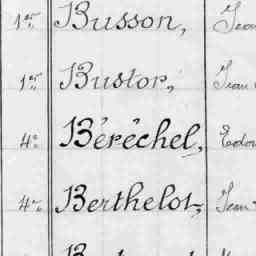 1er Busson, Jean
1er Bustor, Jean
4e Béréchel, Edou
4e Berthelot, Jean